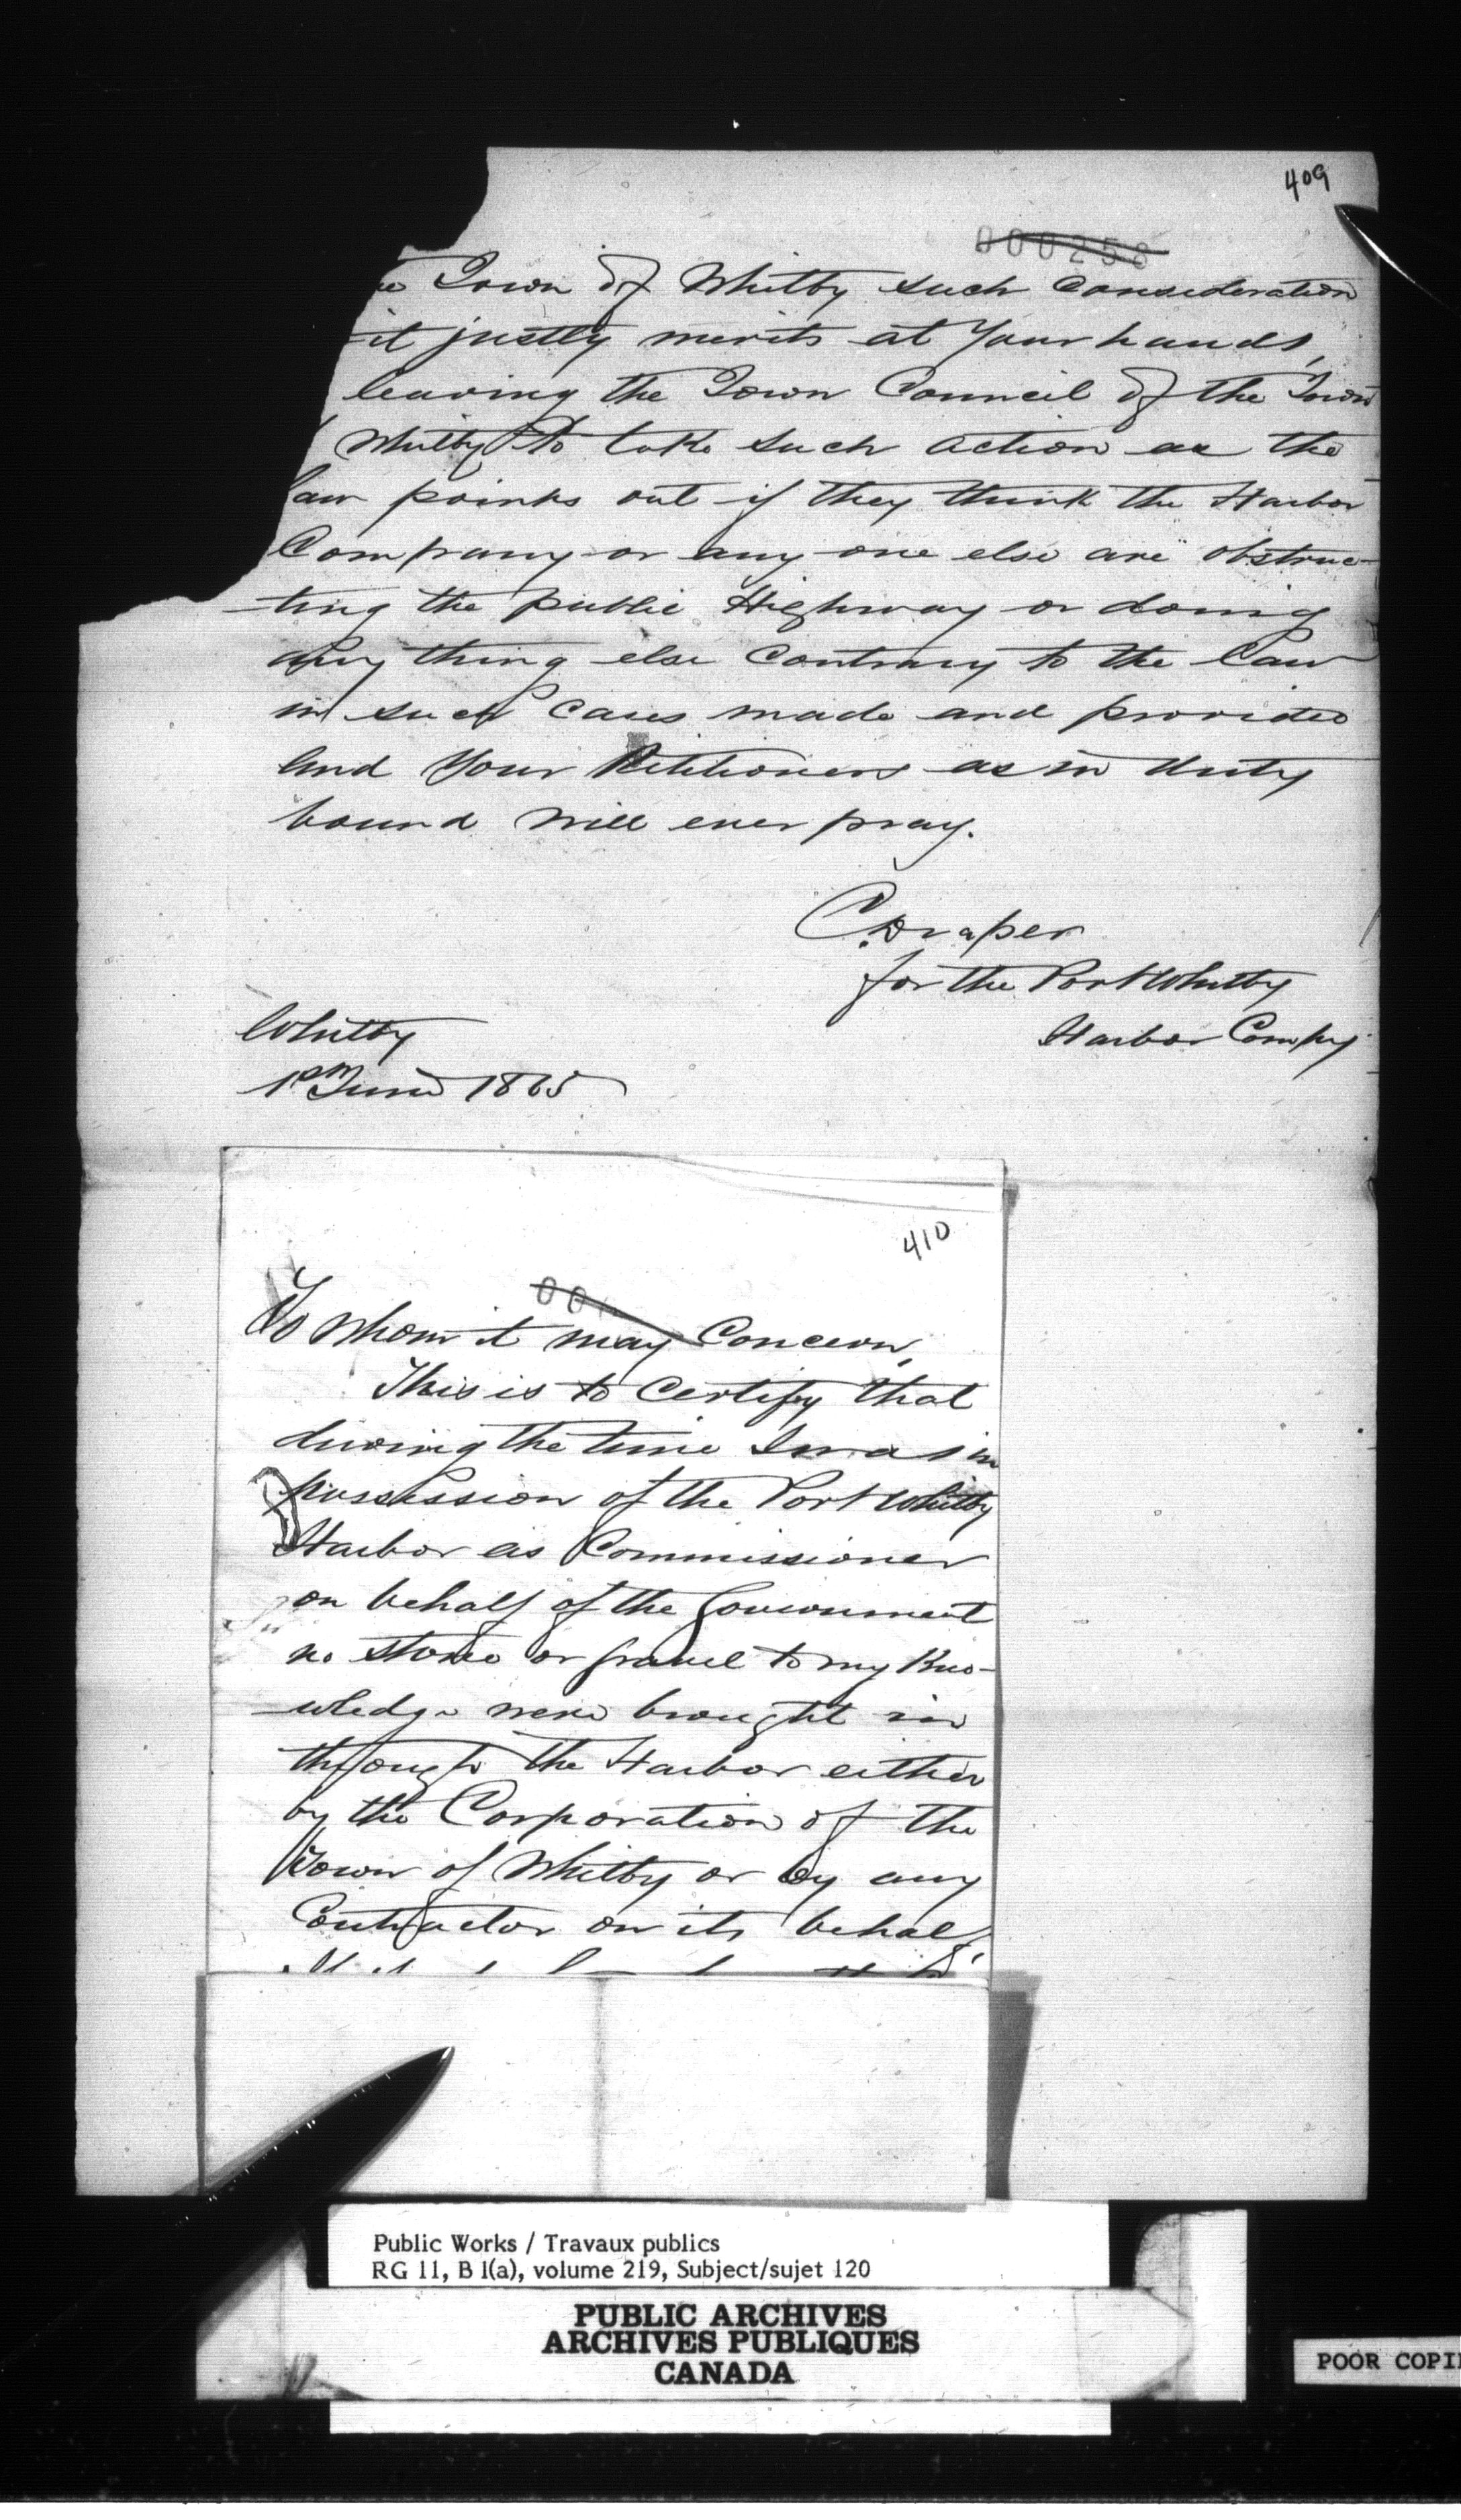 409
000258
Town of Whitby such Consideration
it justly merits at Your hands,
leaving the Town Council of the Town
Whitby to take such action as the
law points out if they think the Harbor
Company or any one else are obstruc-
-ting the public Highway or doing
any thing else Contrary to the Law
in such Cases made and provided
And Your Petitioners as in duty
bound will ever pray.
C. Draper
for the Port Whitby
Harbor Compy
Whitby
1st June 1865
410
00
To Whom it may Concern,
This is to Certify that
during the time I was in
possession of the Port Whitby
Harbor as Commissioner
on behalf of the Government
no stone or gravel to my Kno-
-wledge were brought in
through the Harbor either
by the Corporation of the
Town of Whitby or by any
Contractor on its behalf
Public Works / Travaux publics
RG 11, B 1(a), volume 219, Subject/sujet 120
PUBLIC ARCHIVES
ARCHIVES PUBLIQUES
CANADA
POOR COPI